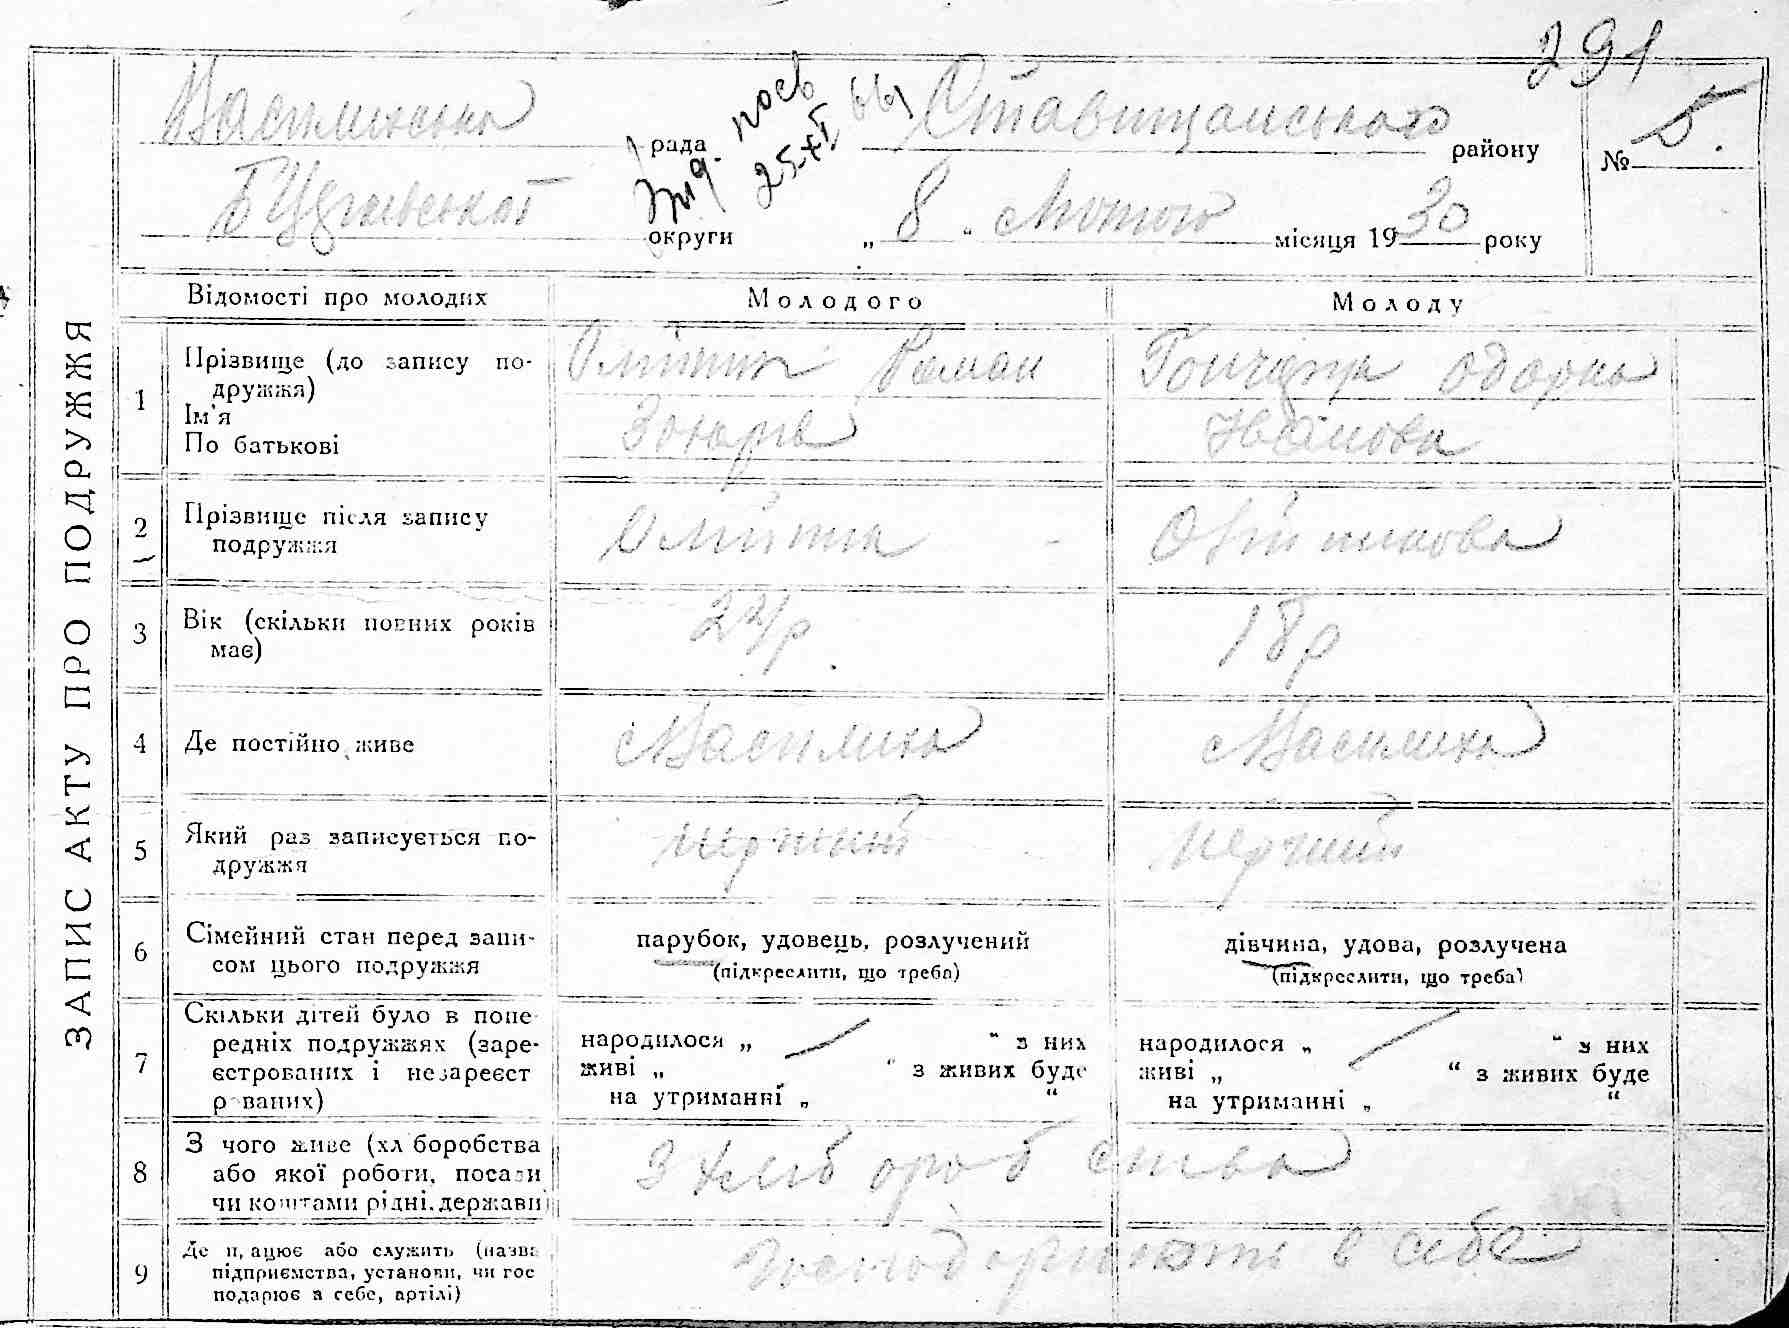 291
рада Ставищанського району № 5.
округи „ 8 “ Лютого місяця 1930 року
ЗАПИС АКТУ ПРО ПОДРУЖЖЯ
Відомості про молодих Молодого Молоду
1 Прізвище (до запису по-
дружжя)
Ім'я
По батькові
Роман
Одарка
Іванова
2 Прізвище після запису
подружжя
3 Вік (скільки повних років
має)
18 р
4 Де постійно живе
5 Який раз записується по-
дружжя
перший перший
6 Сімейний стан перед запи-
сом цього подружжя
парубок, удовець, розлучений
(підкреслити, що треба)
дівчина, удова, розлучена
(підкреслити, що треба)
7 Скільки дітей було в попе
редніх подружжях (заре-
єстрованих і незареєст
рованих)
народилося „ “ з них
живі „ “ з живих буде
на утриманні „ “
народилося „ “ з них
живі „ “ з живих буде
на утриманні „ “
8 З чого живе (хліборобства
або якої роботи, посади
чи коштами рідні, державні)
З хліборобства
9 Де працює або служить (назва
підприємства, установи, чи гос
подарює в себе, артілі)
в себе